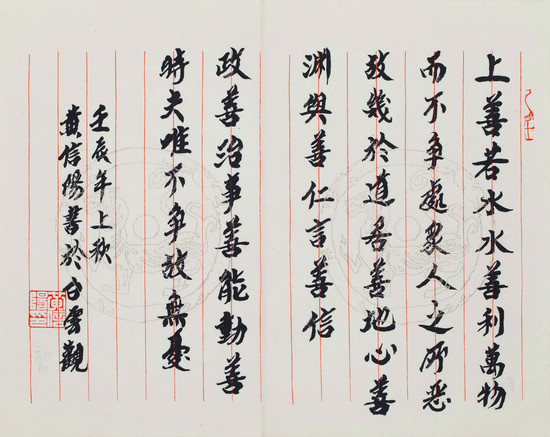 上善若水水善利萬物
而不爭處衆人之所惡
故幾於道居善地心善
淵與善仁言善信
政善治事善能動善
時夫唯不爭故無憂
壬辰年上秋
黃信陽書於白雲觀